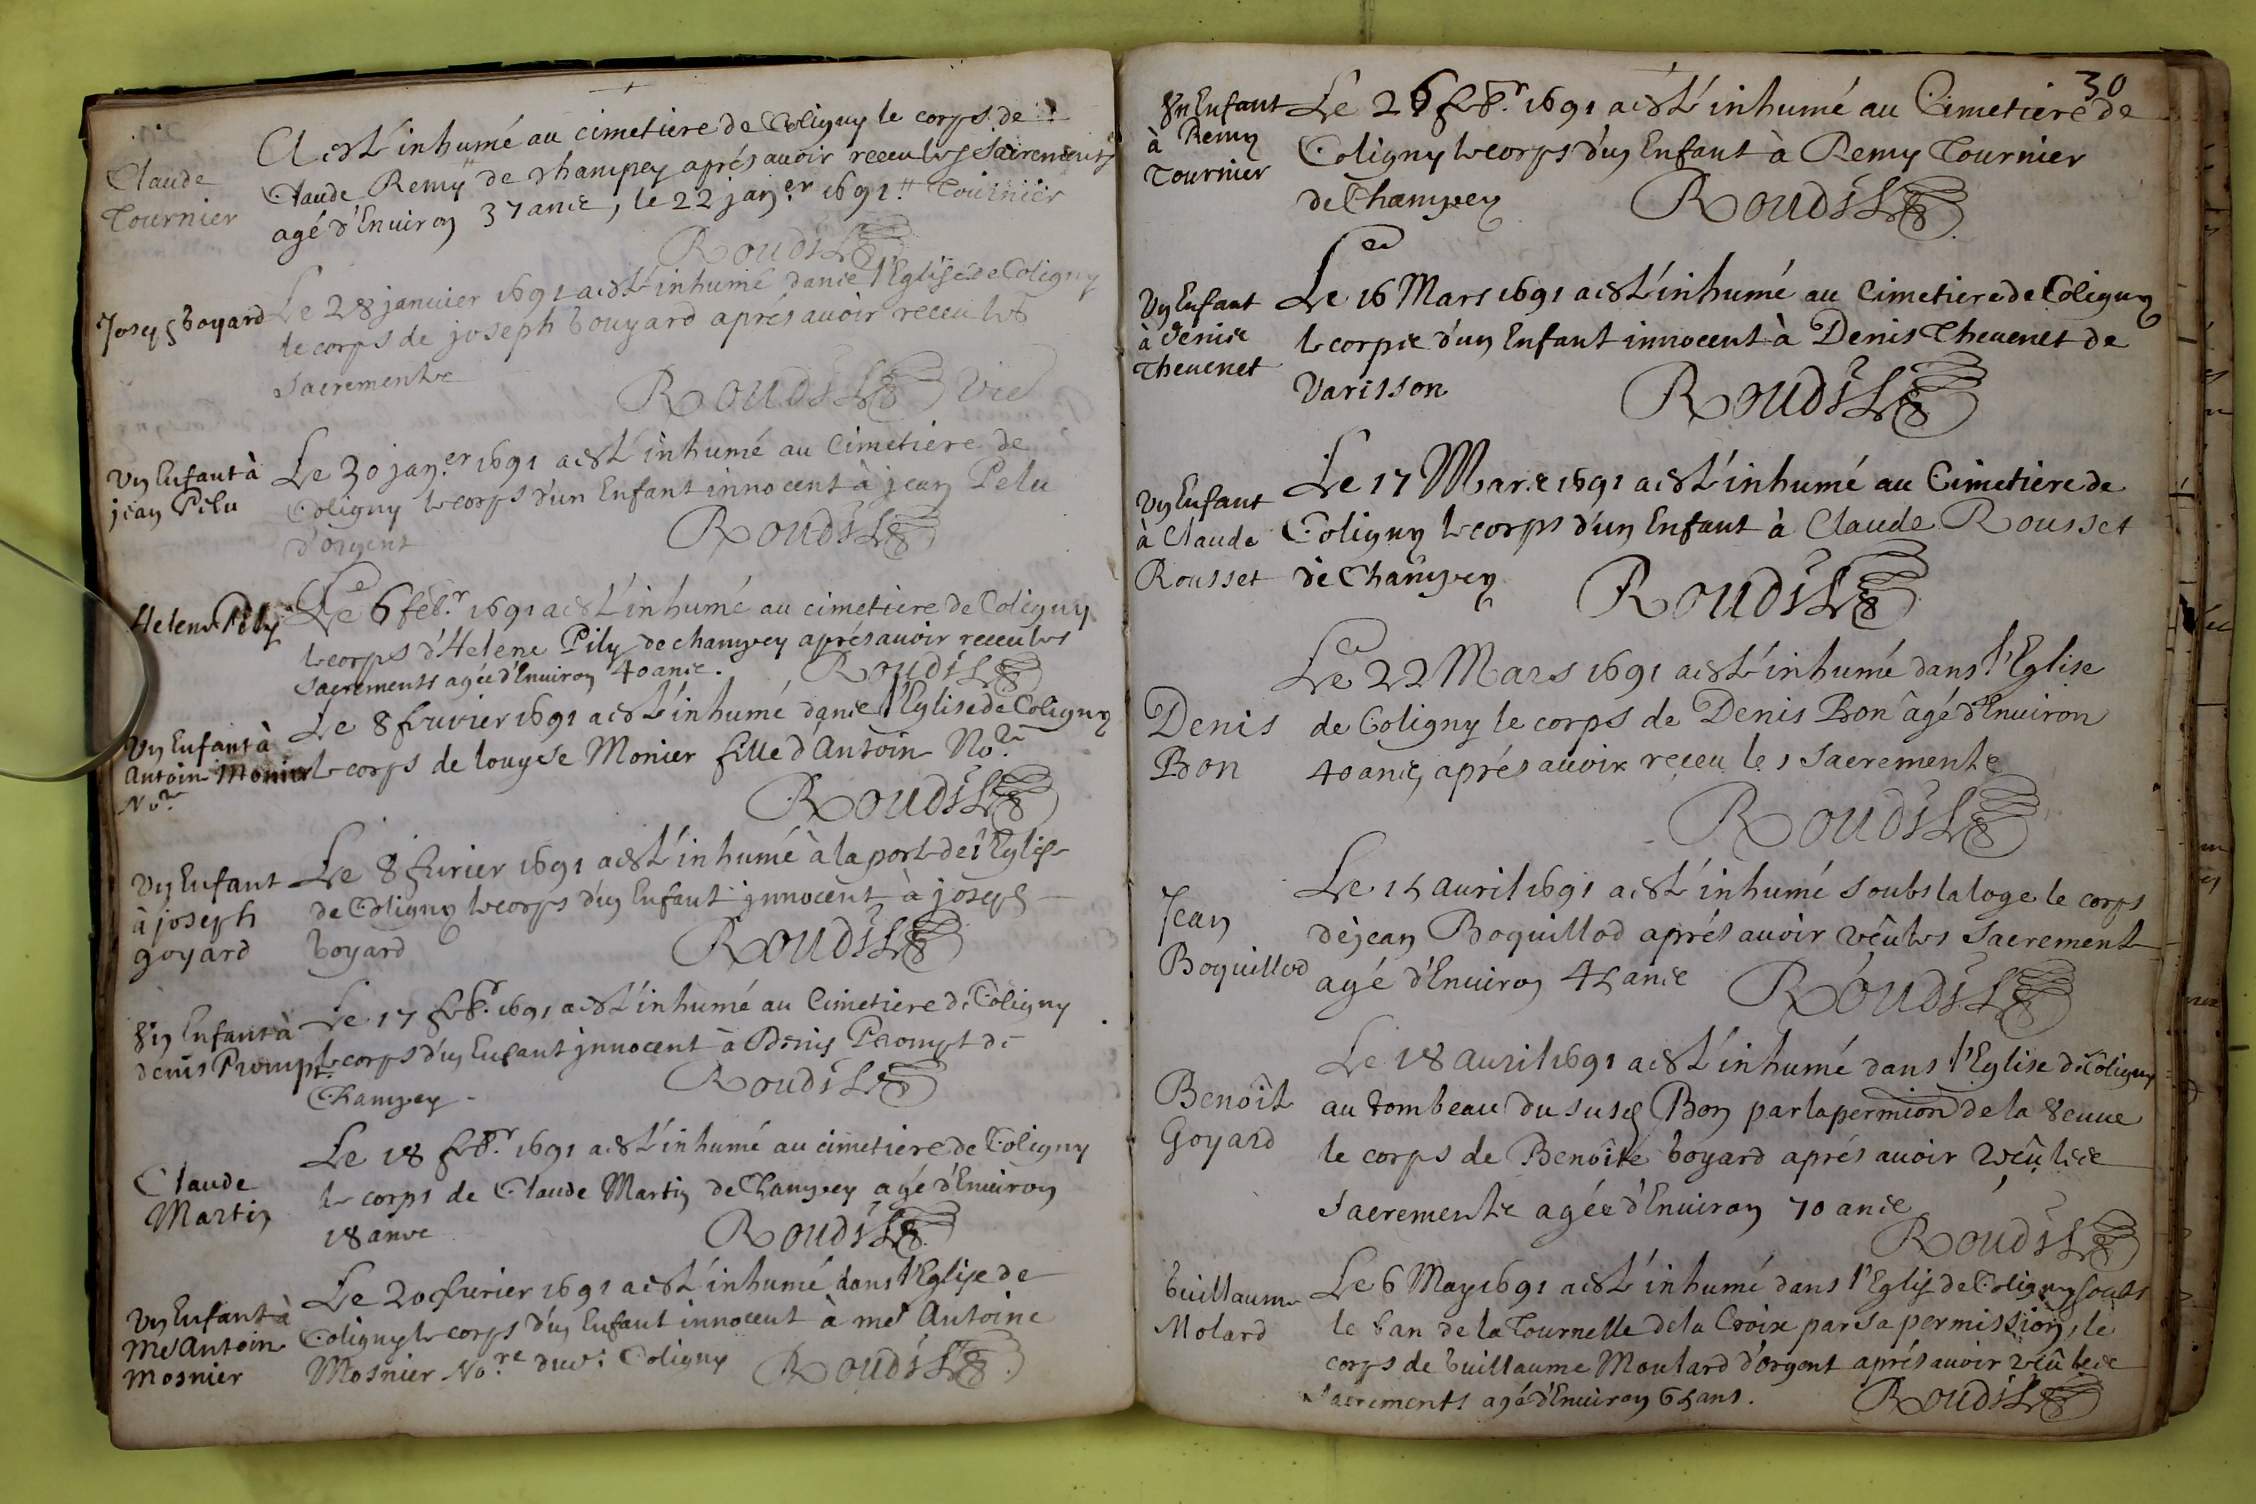 Claude
Tournier
A esté inhumé au cimetiere de Coligny le corps de
Claude Remy de Champey aprés auoir receu les Sacrements
agé d'Enuiron 37 ans, le 22 jan.er 1691. Tournier
Roudil
Joseph Goyard
Le 28 januier 1691 a esté inhumé dans l'Eglise de Coligny
le corps de joseph Gouyard aprés auoir receu les
Sacrements
Roudil Vic
Un Enfant à
jean Pelu
Le 30 jan.er 1691 a esté inhumé au Cimetiere de
Coligny le corps d'un Enfant innocent à jean Pelu
d'orgent
Roudil
Helene Pily
Le 6 feb.r 1691 a esté inhumé au cimetiere de Coligny
le corps d'Helene Pily de champey aprés auoir receu les
Sacrements agée d'Enuiron 40 ans.
Roudil
Un Enfant à
Antoine Monier
No.re
Le 8 feurier 1691 a esté inhumé dans l'Eglise de Coligny
le corps de louyse Monier fille d'Antoine No.re
Roudil
Un Enfant
à joseph
goyard
Le 8 feurier 1691 a esté inhumé à la porte de l'Eglise
de Coligny le corps d'un Enfant innocent à joseph
Goyard
Roudil
Un Enfant à
denis Prompt
Le 17 feb.r 1691 a esté inhumé au Cimetiere de Coligny
le corps d'un Enfant innocent à Denis Prompt de
Champey
Roudil
Claude
Martin
Le 18 feb.r 1691 a esté inhumé au cimetiere de Coligny
le corps de Claude Martin de Champey agé d'Enuiron
18 ans
Roudil
Un Enfant à
Me Antoine
Mosnier
Le 20 feurier 1691 a esté inhumé dans l'Eglise de
Coligny le corps d'un Enfant innocent à me Antoine
Mosnier No.re Coligny
Roudil
30
Un Enfant
à Remy
Tournier
Le 26 feb.r 1691 a esté inhumé au Cimetiere de
Coligny le corps d'un Enfant à Remy Tournier
de Champey
Roudil
Un Enfant
à denis
Theuenet
Le 16 Mars 1691 a esté inhumé au Cimetiere de Coligny
le corps d'un Enfant innocent à Denis Theuenet de
Varisson
Roudil
Un Enfant
à Claude
Rousset
Le 17 Mars 1691 a esté inhumé au Cimetiere de
Coligny le corps d'un Enfant à Claude Rousset
de Champey
Roudil
Denis
Bon
Le 22 Mars 1691 a esté inhumé dans l'Eglise
de Coligny le corps de Denis Bon âgé d'Enuiron
40 ans, aprés auoir receu les Sacrements
Roudil
Jean
Boquillod
Le 15 auril 1691 a esté inhumé soubs la loge le corps
de jean Boquillod aprés auoir rêeu les Sacrements
agé d'Enuiron 45 ans
Roudil
Benoît
Goyard
Le 18 auril 1691 a esté inhumé dans l'Eglise de Coligny
au tombeau du susd Bon par la permion de la veuue
le corps de Benoîte Goyard aprés auoir rêeu les
Sacrements agée d'Enuiron 70 ans
Roudil
Guillaume
Molard
Le 6 May 1691 a esté inhumé dans l'Eglise de Coligny soubs
le ban de la Tournelle de la Croix par sa permission, le
corps de Guillaume Moulard d'orgent aprés auoir rêeu les
Sacrements agé d'Enuiron 65 ans.
Roudil